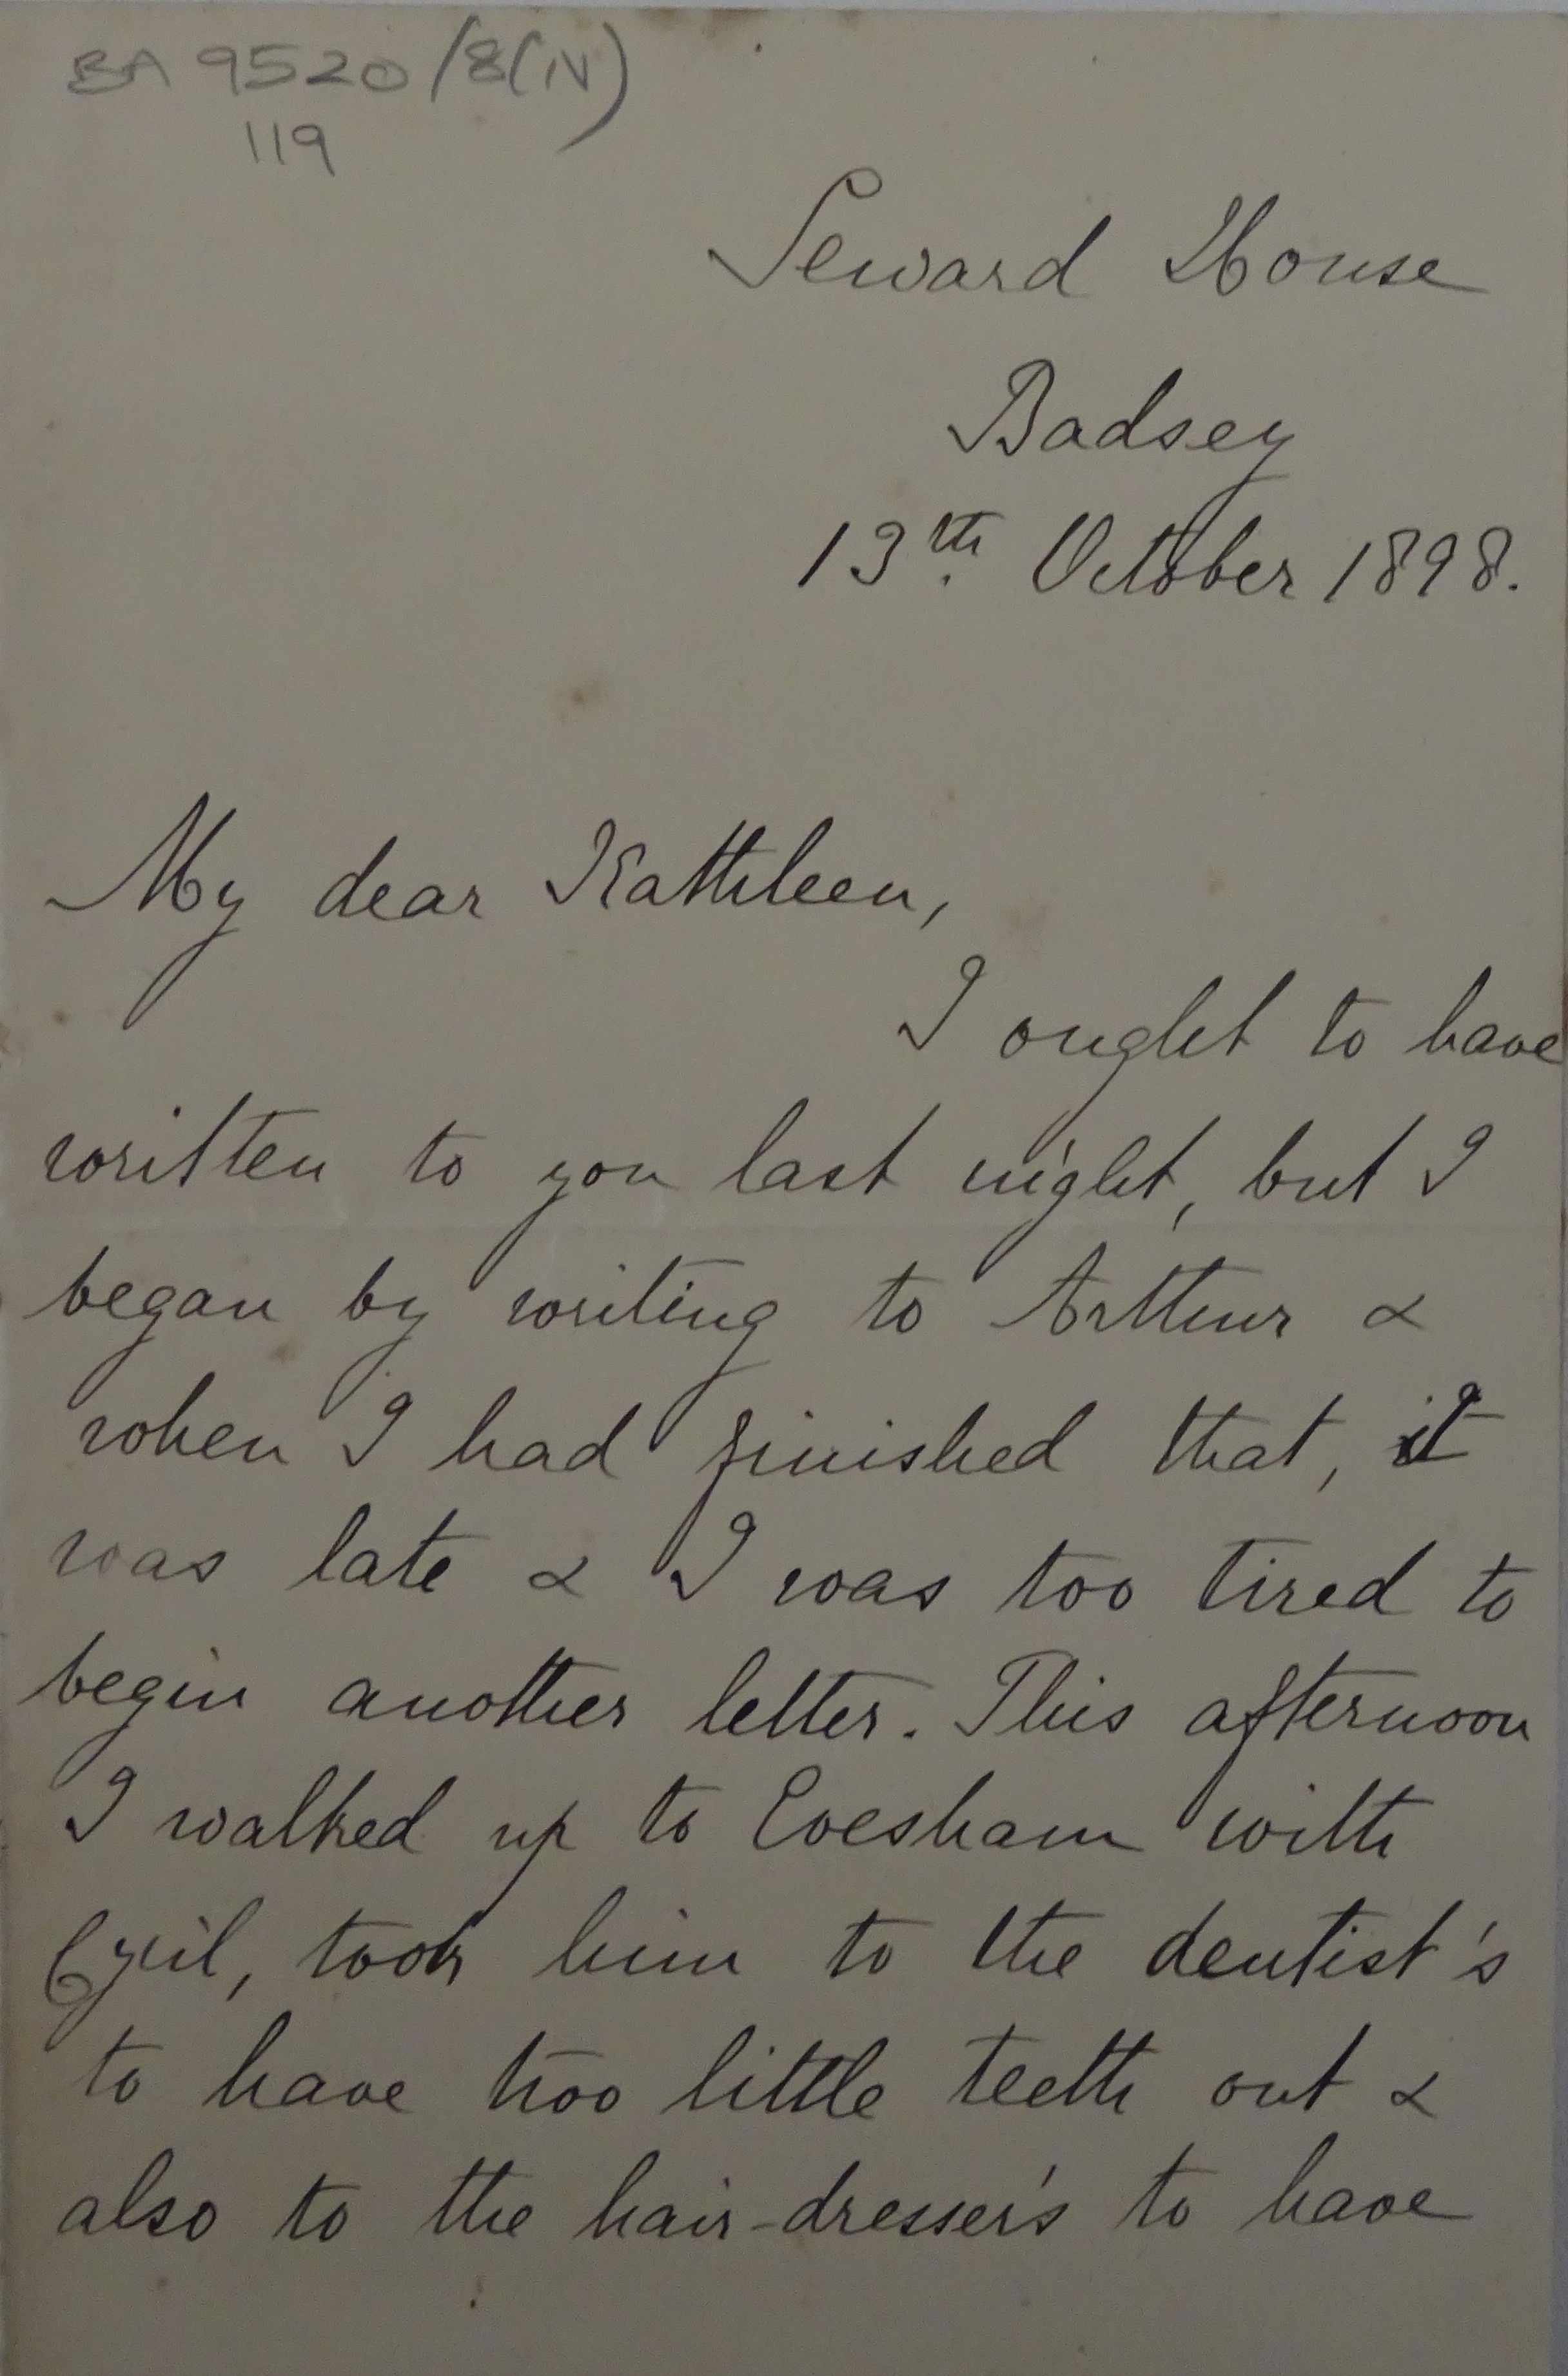 BA 9520/8(IV)
119
Seward House
Badsey
13th October 1898.
My dear Kathleen,
I ought to have
written to you last night, but I
began by writing to Arthur &
when I had finished that, it
was late & I was too tired to
begin another letter. This afternoon
I walked up to Evesham with
Cyril, took him to the dentist's
to have two little teeth out &
also to the hair-dresser's to have